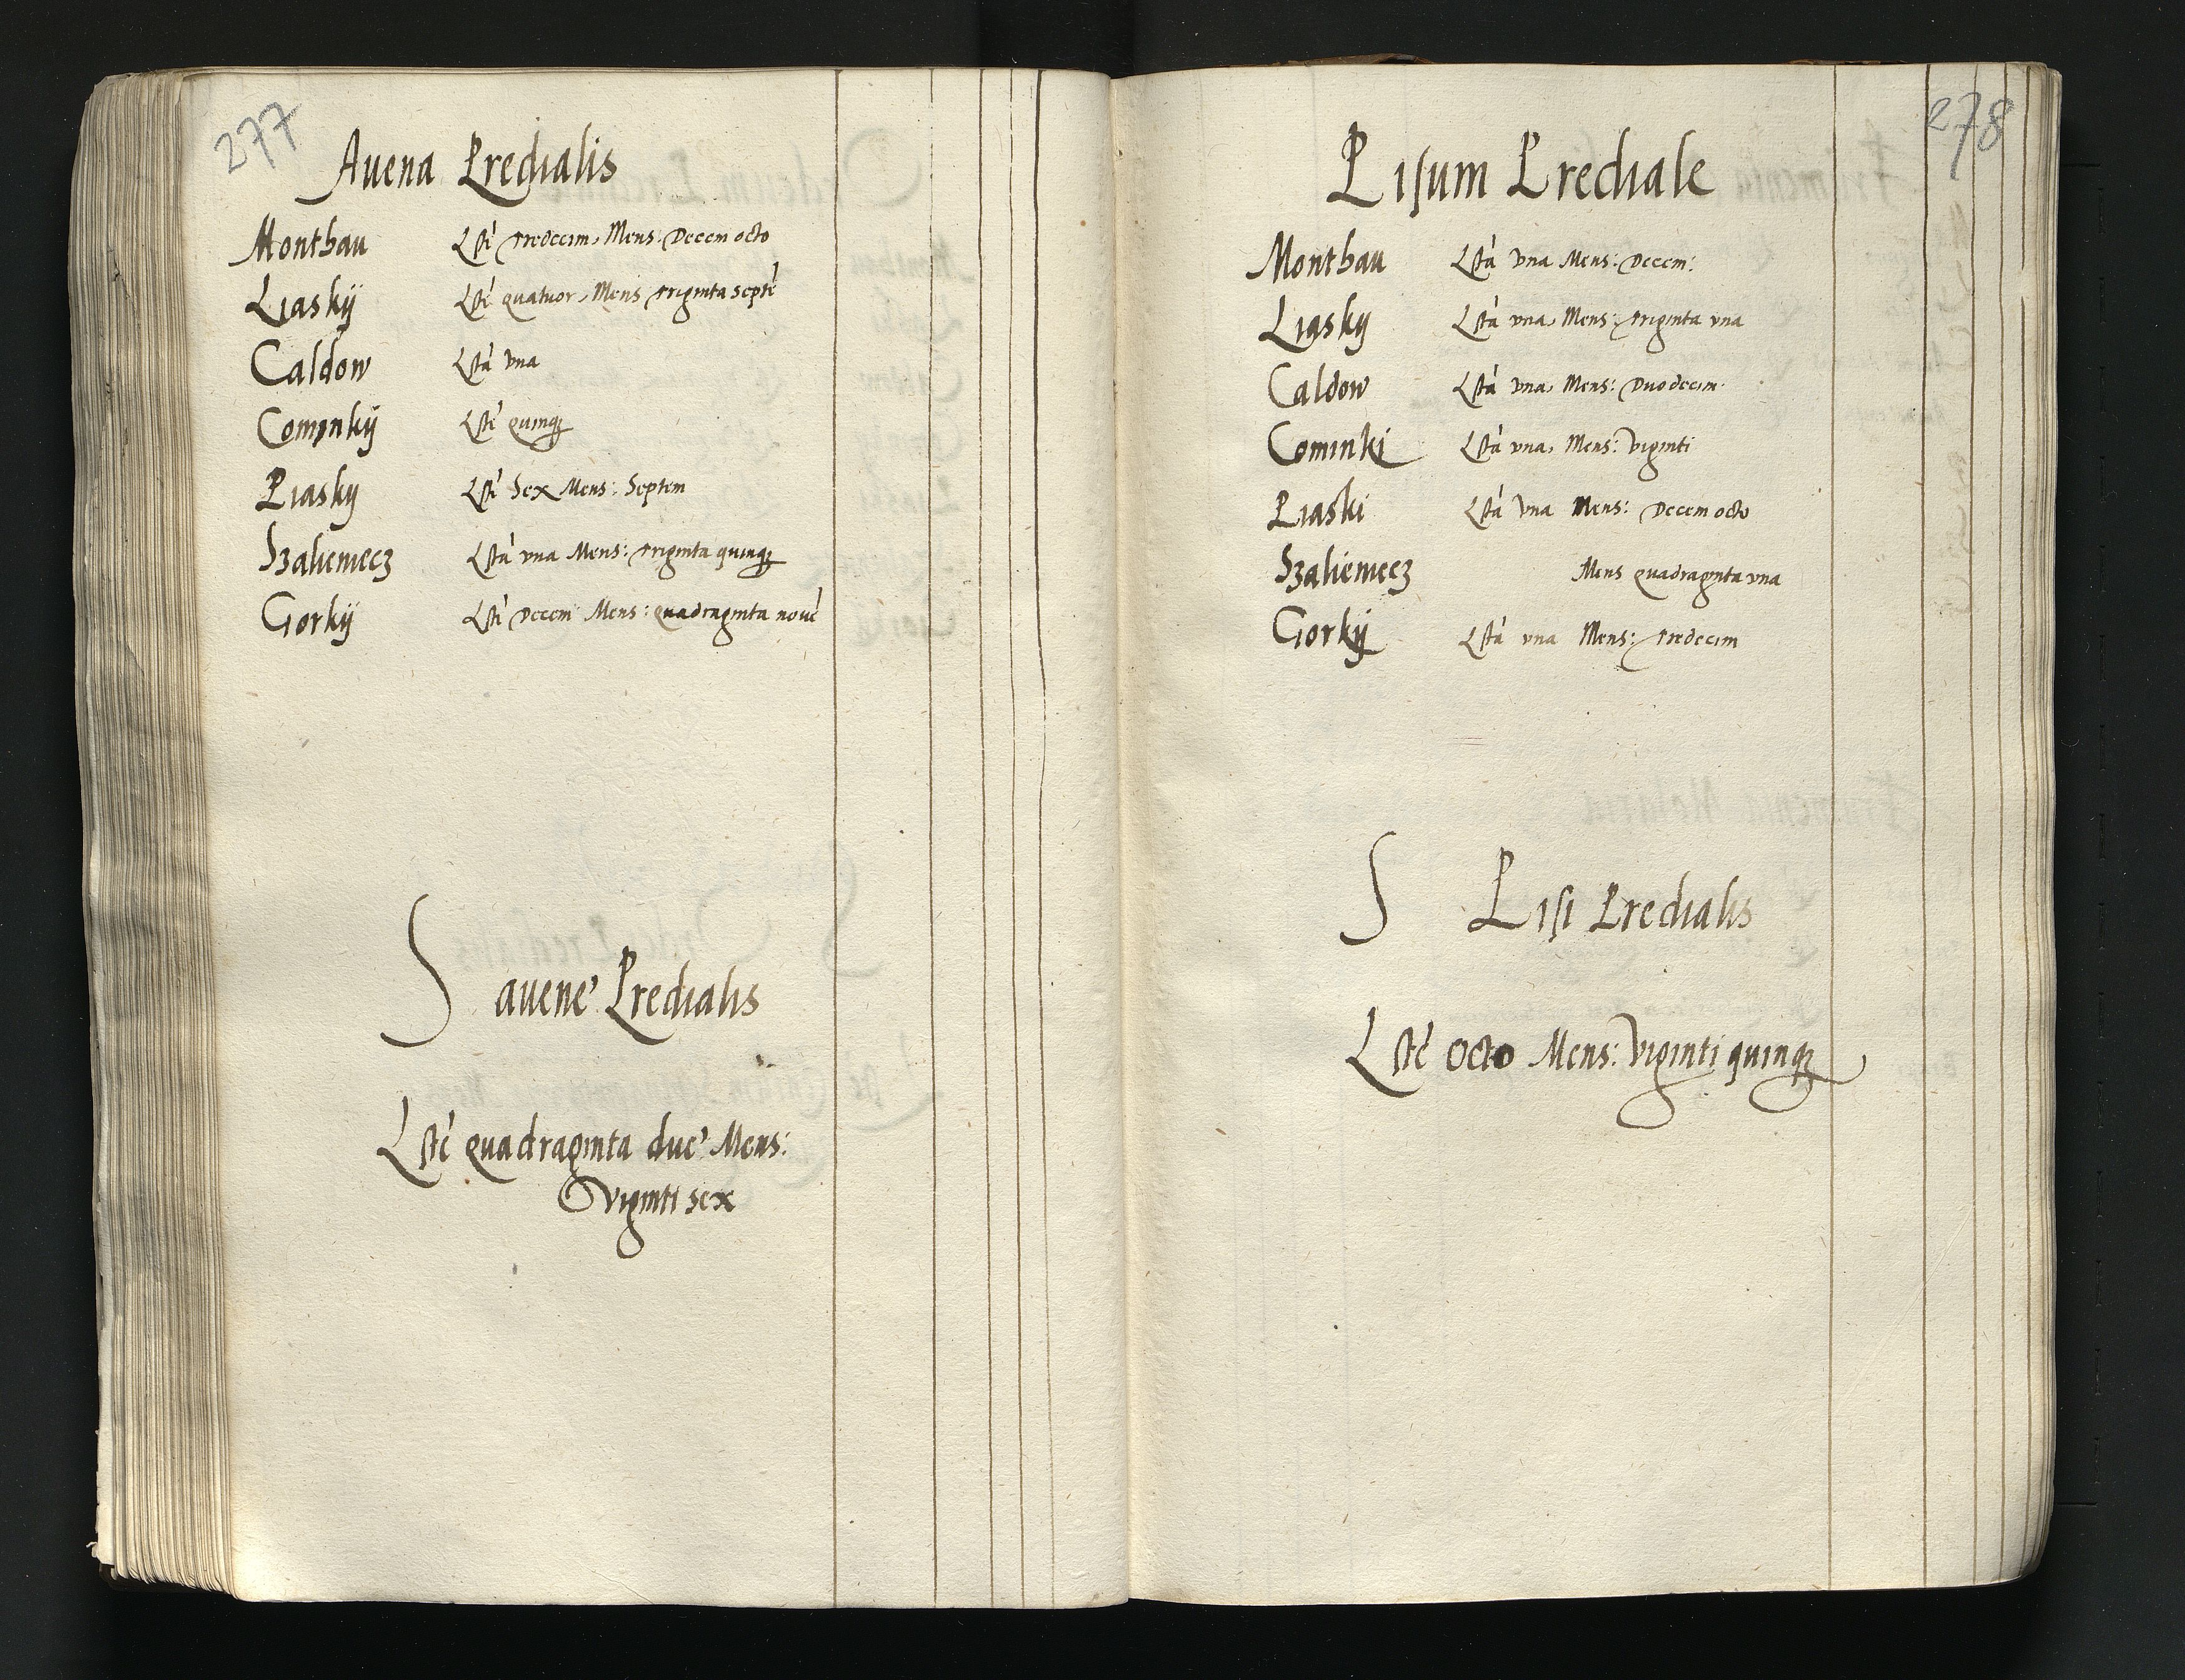 277
Auena Predialis
Monthau Lste tredecim, Mens: Decem octo
Liaskÿ Lste quatuor, Mens triginta septe
Caldow Lsta vna
Cominkÿ Lste quinq;
Piasky Lste Sex Mens: Septem
Szaliemecz Lsta vna Mens: triginta quinq;
Gorkÿ Lste Decem Mens: quadraginta noue
S auene Predialis
Lste quadraginta due Mens:
Viginti sex
278
Pisum Prediale
Monthau Lsta vna Mens: Decem:
Liasky Lsta vna, Mens: triginta vna
Caldow Lsta vna, Mens: Duodecim
Cominki Lsta vna, Mens: Viginti
Piaski Lsta Vna Mens: Decem octo
Szaliemecz Mens quadraginta vna
Gorkÿ Lsta vna Mens: tredecim
S Pisi Predialis
Lste Octo Mens: Viginti quinq;